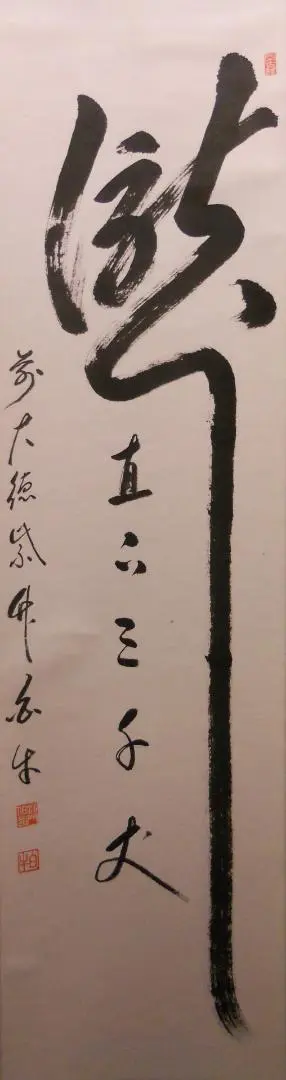 瀧
直下三千丈
前大徳紫